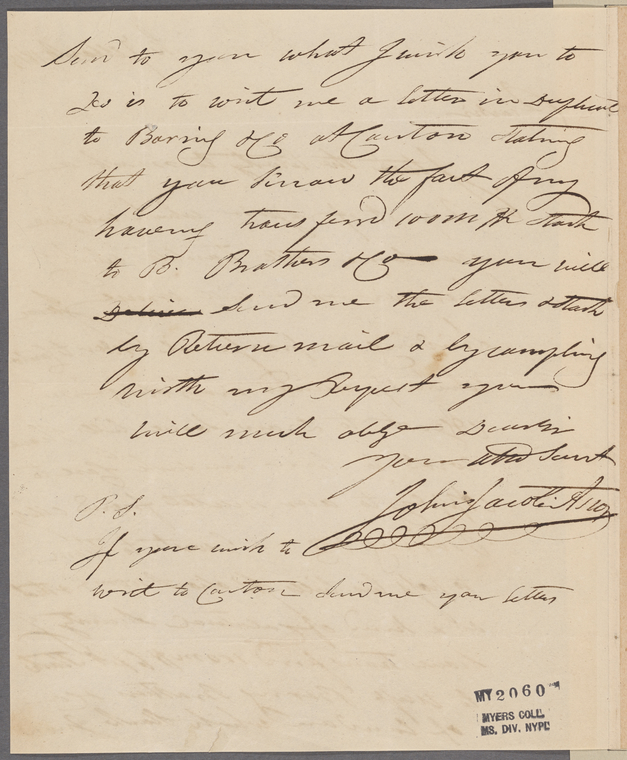 Send to you what I wish you to
Do is to writ me a letter in Duplicat
to Baring & Co at Canton stating
that you know the fact of my
haveing transferrd 100 m st stock
to B. Brothers & Co you will
Send me the letters
by Return mail & by compling
with my Request you
will much oblge Dear Sir
your obd Servt
John Jacob Astor
P.S.
If you wish to
writ to Canton Send me your letters
MY 2060
MYERS COLL.
MS. DIV. NYPL